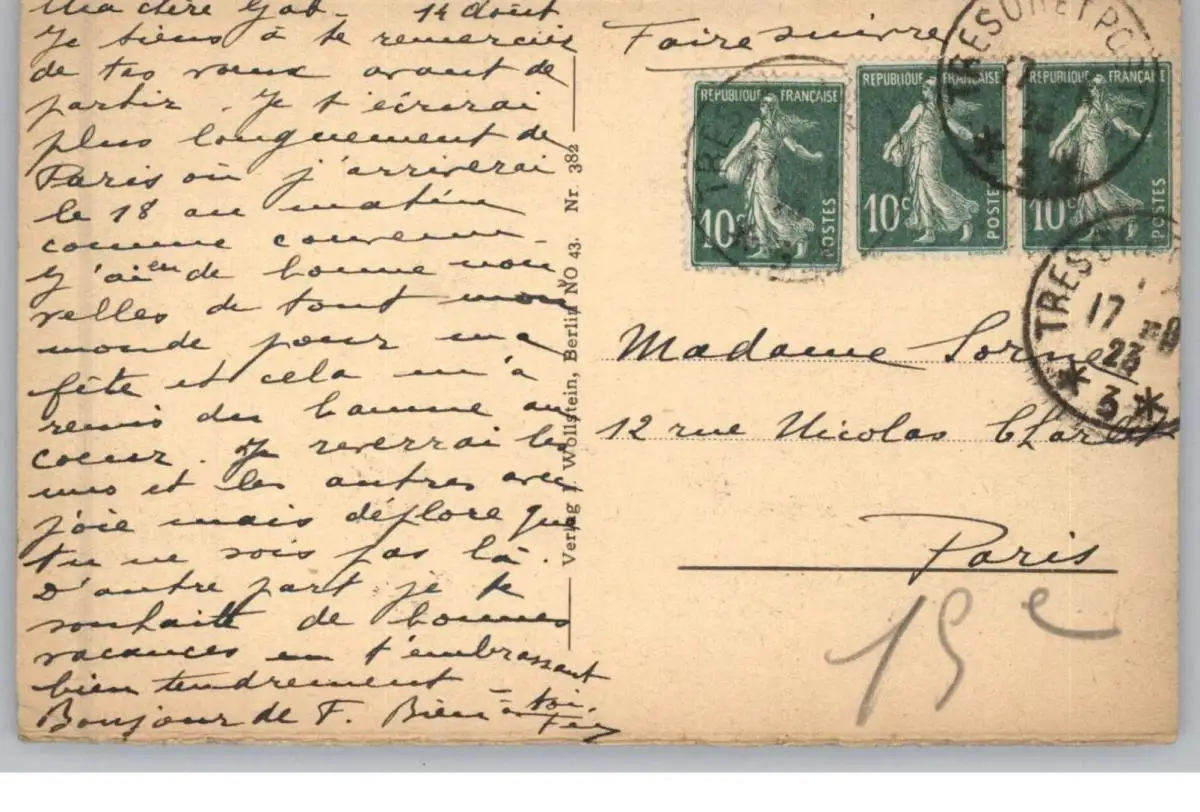 Ma chère Gab. 14 août
Je tiens à te remercier
de tes vœux avant de
partir. Je t'écrirai
plus longuement de
Paris où j'arriverai
le 18 au matin
comme convenu.
J'ai eu de bonne nou
velles de tout mon
monde pour ma
fête et cela m'a
remis du baume au
coeur. Je reverrai les
uns et les autres avec
joie mais déplore que
tu ne sois pas là.
D'autre part je te
souhaite de bonnes
vacances en t'embrassant
bien tendrement
Bonjour de F. Bien à toi.
Verlag J. Wollstein, Berlin NO 43. Nr. 382
Faire suivre
REPUBLIQUE FRANÇAISE
10c POSTES
REPUBLIQUE FRANÇAISE
10c POSTES
REPUBLIQUE FRANÇAISE
10c POSTES
TRESOR ET POSTES
17
23
* 3 *
TRES
17 -8
23
* 3 *
Madame
12 rue Nicolas Charlet
Paris
15e